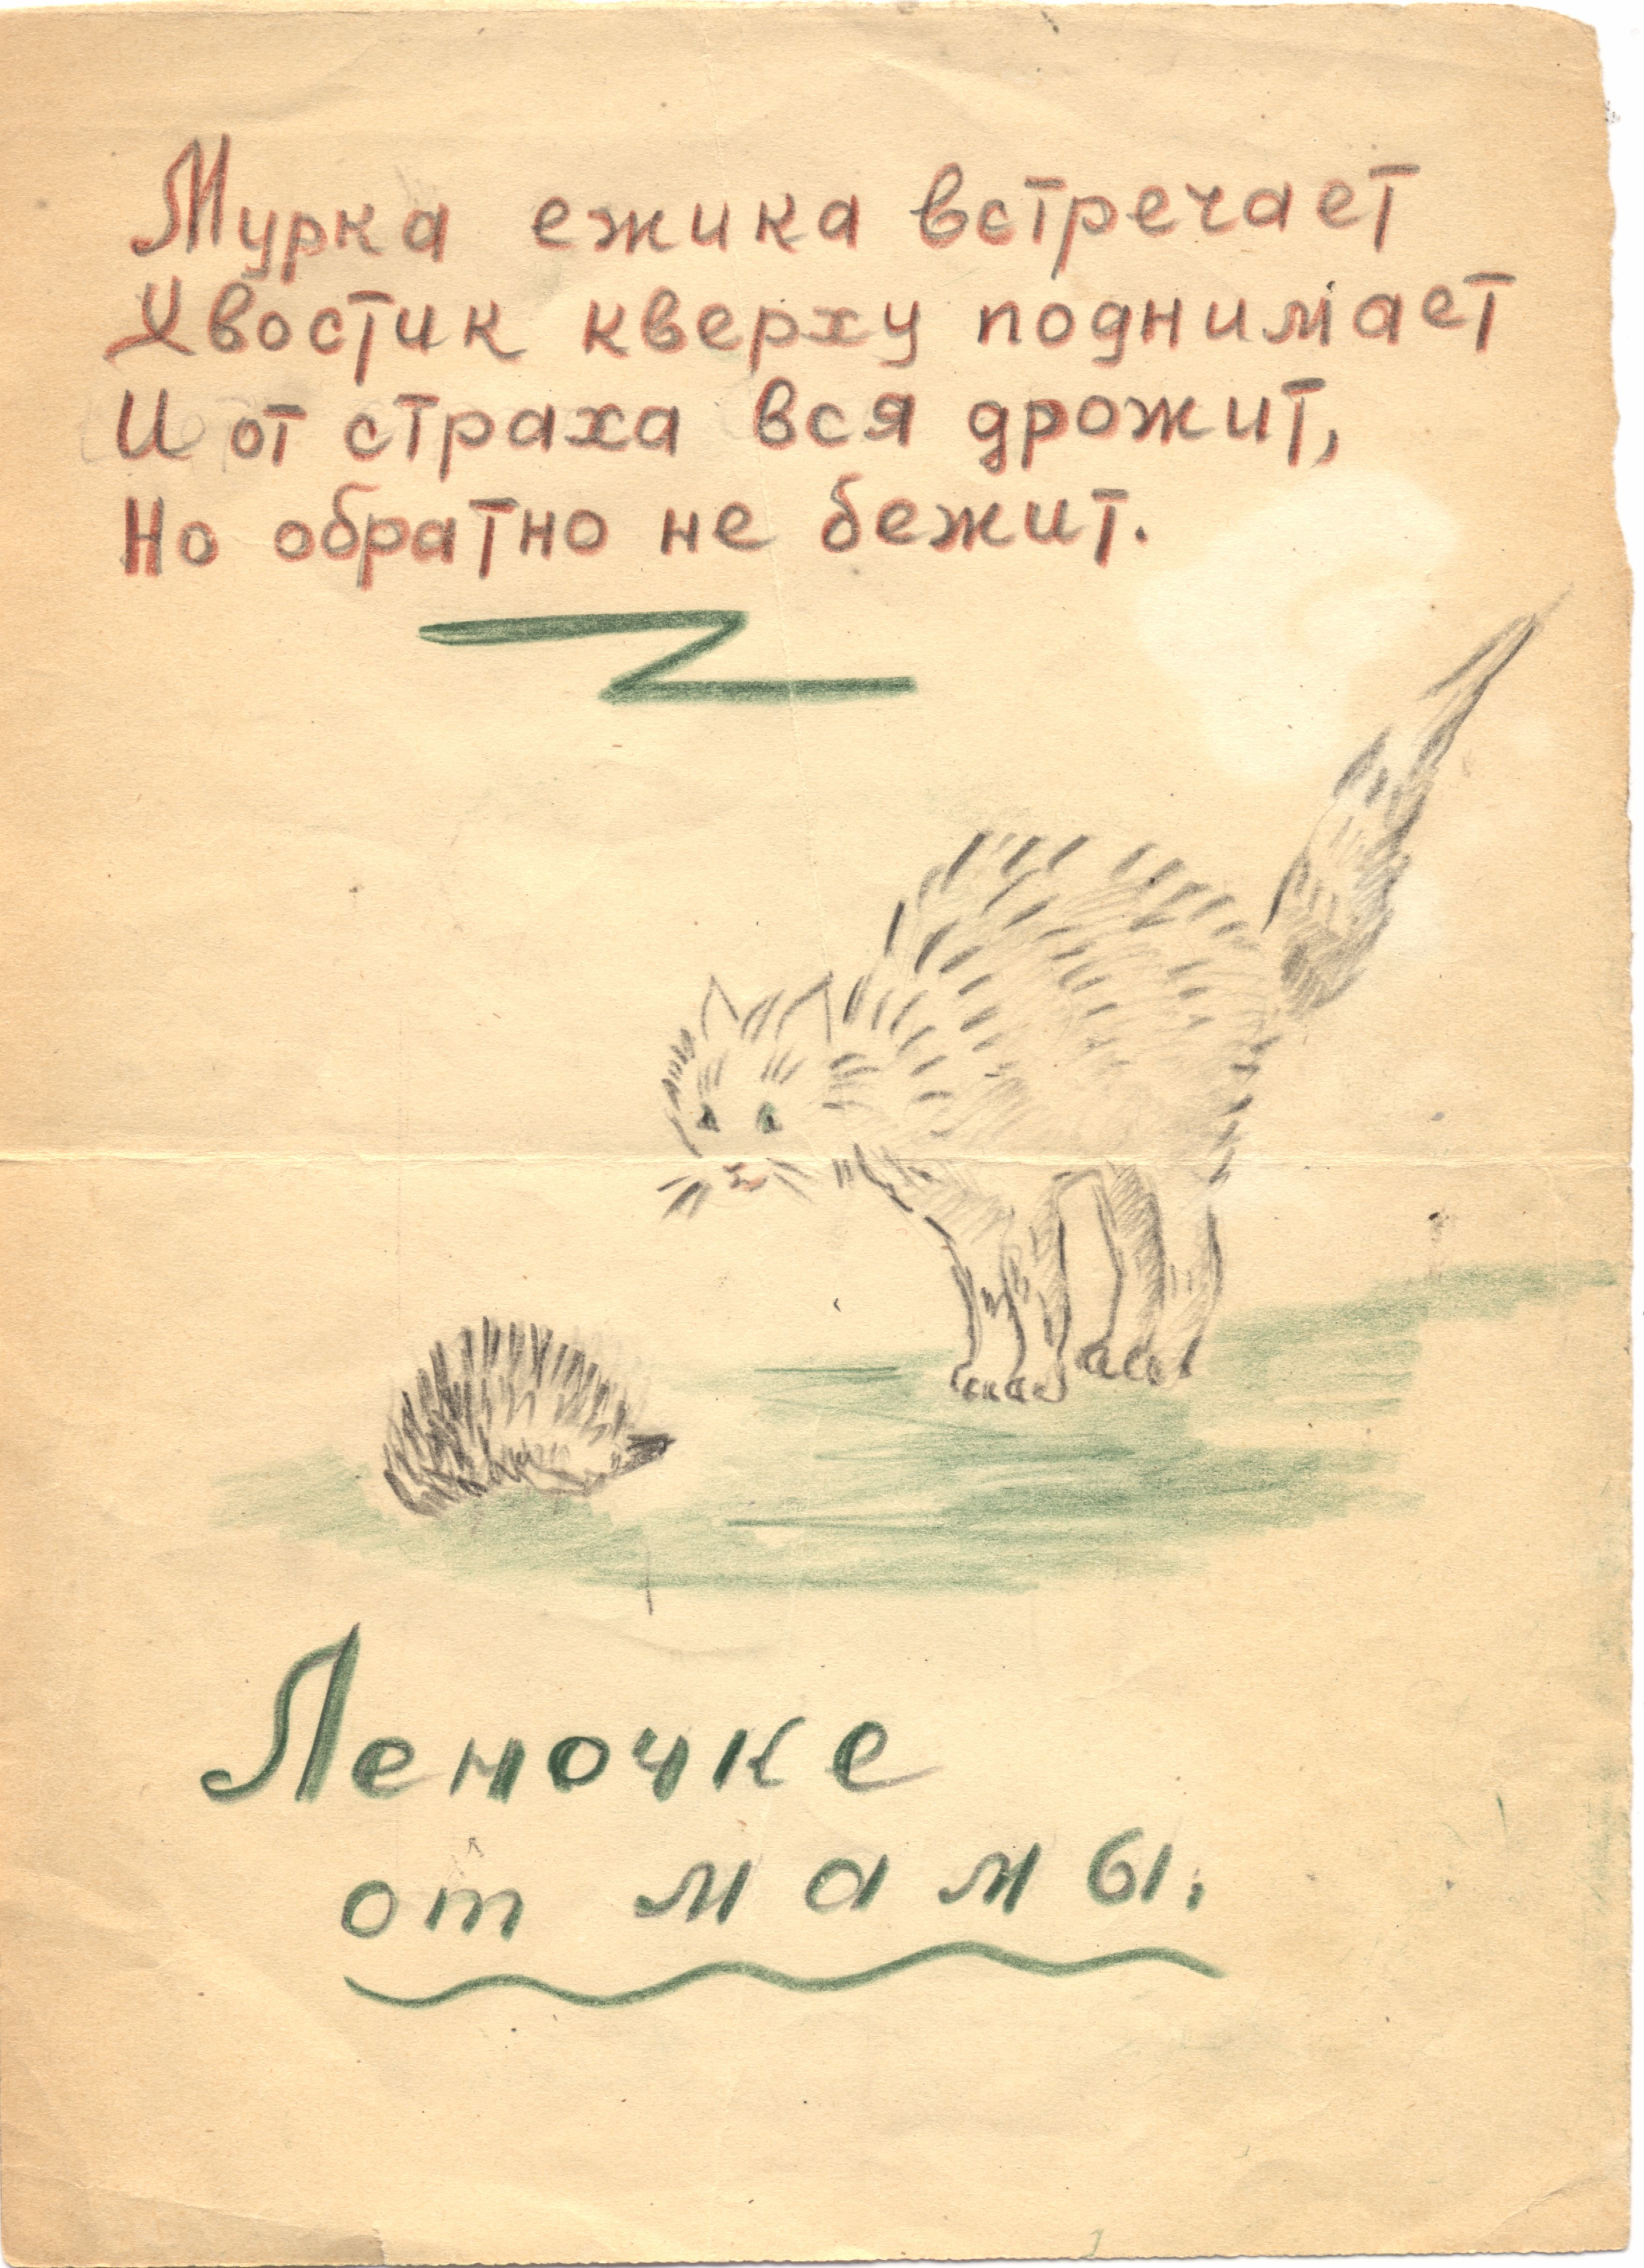 Мурка ежика встречает
Хвостик кверху поднимает
И от страха вся дрожит,
Но обратно не бежит.
Леночке
от мамы.